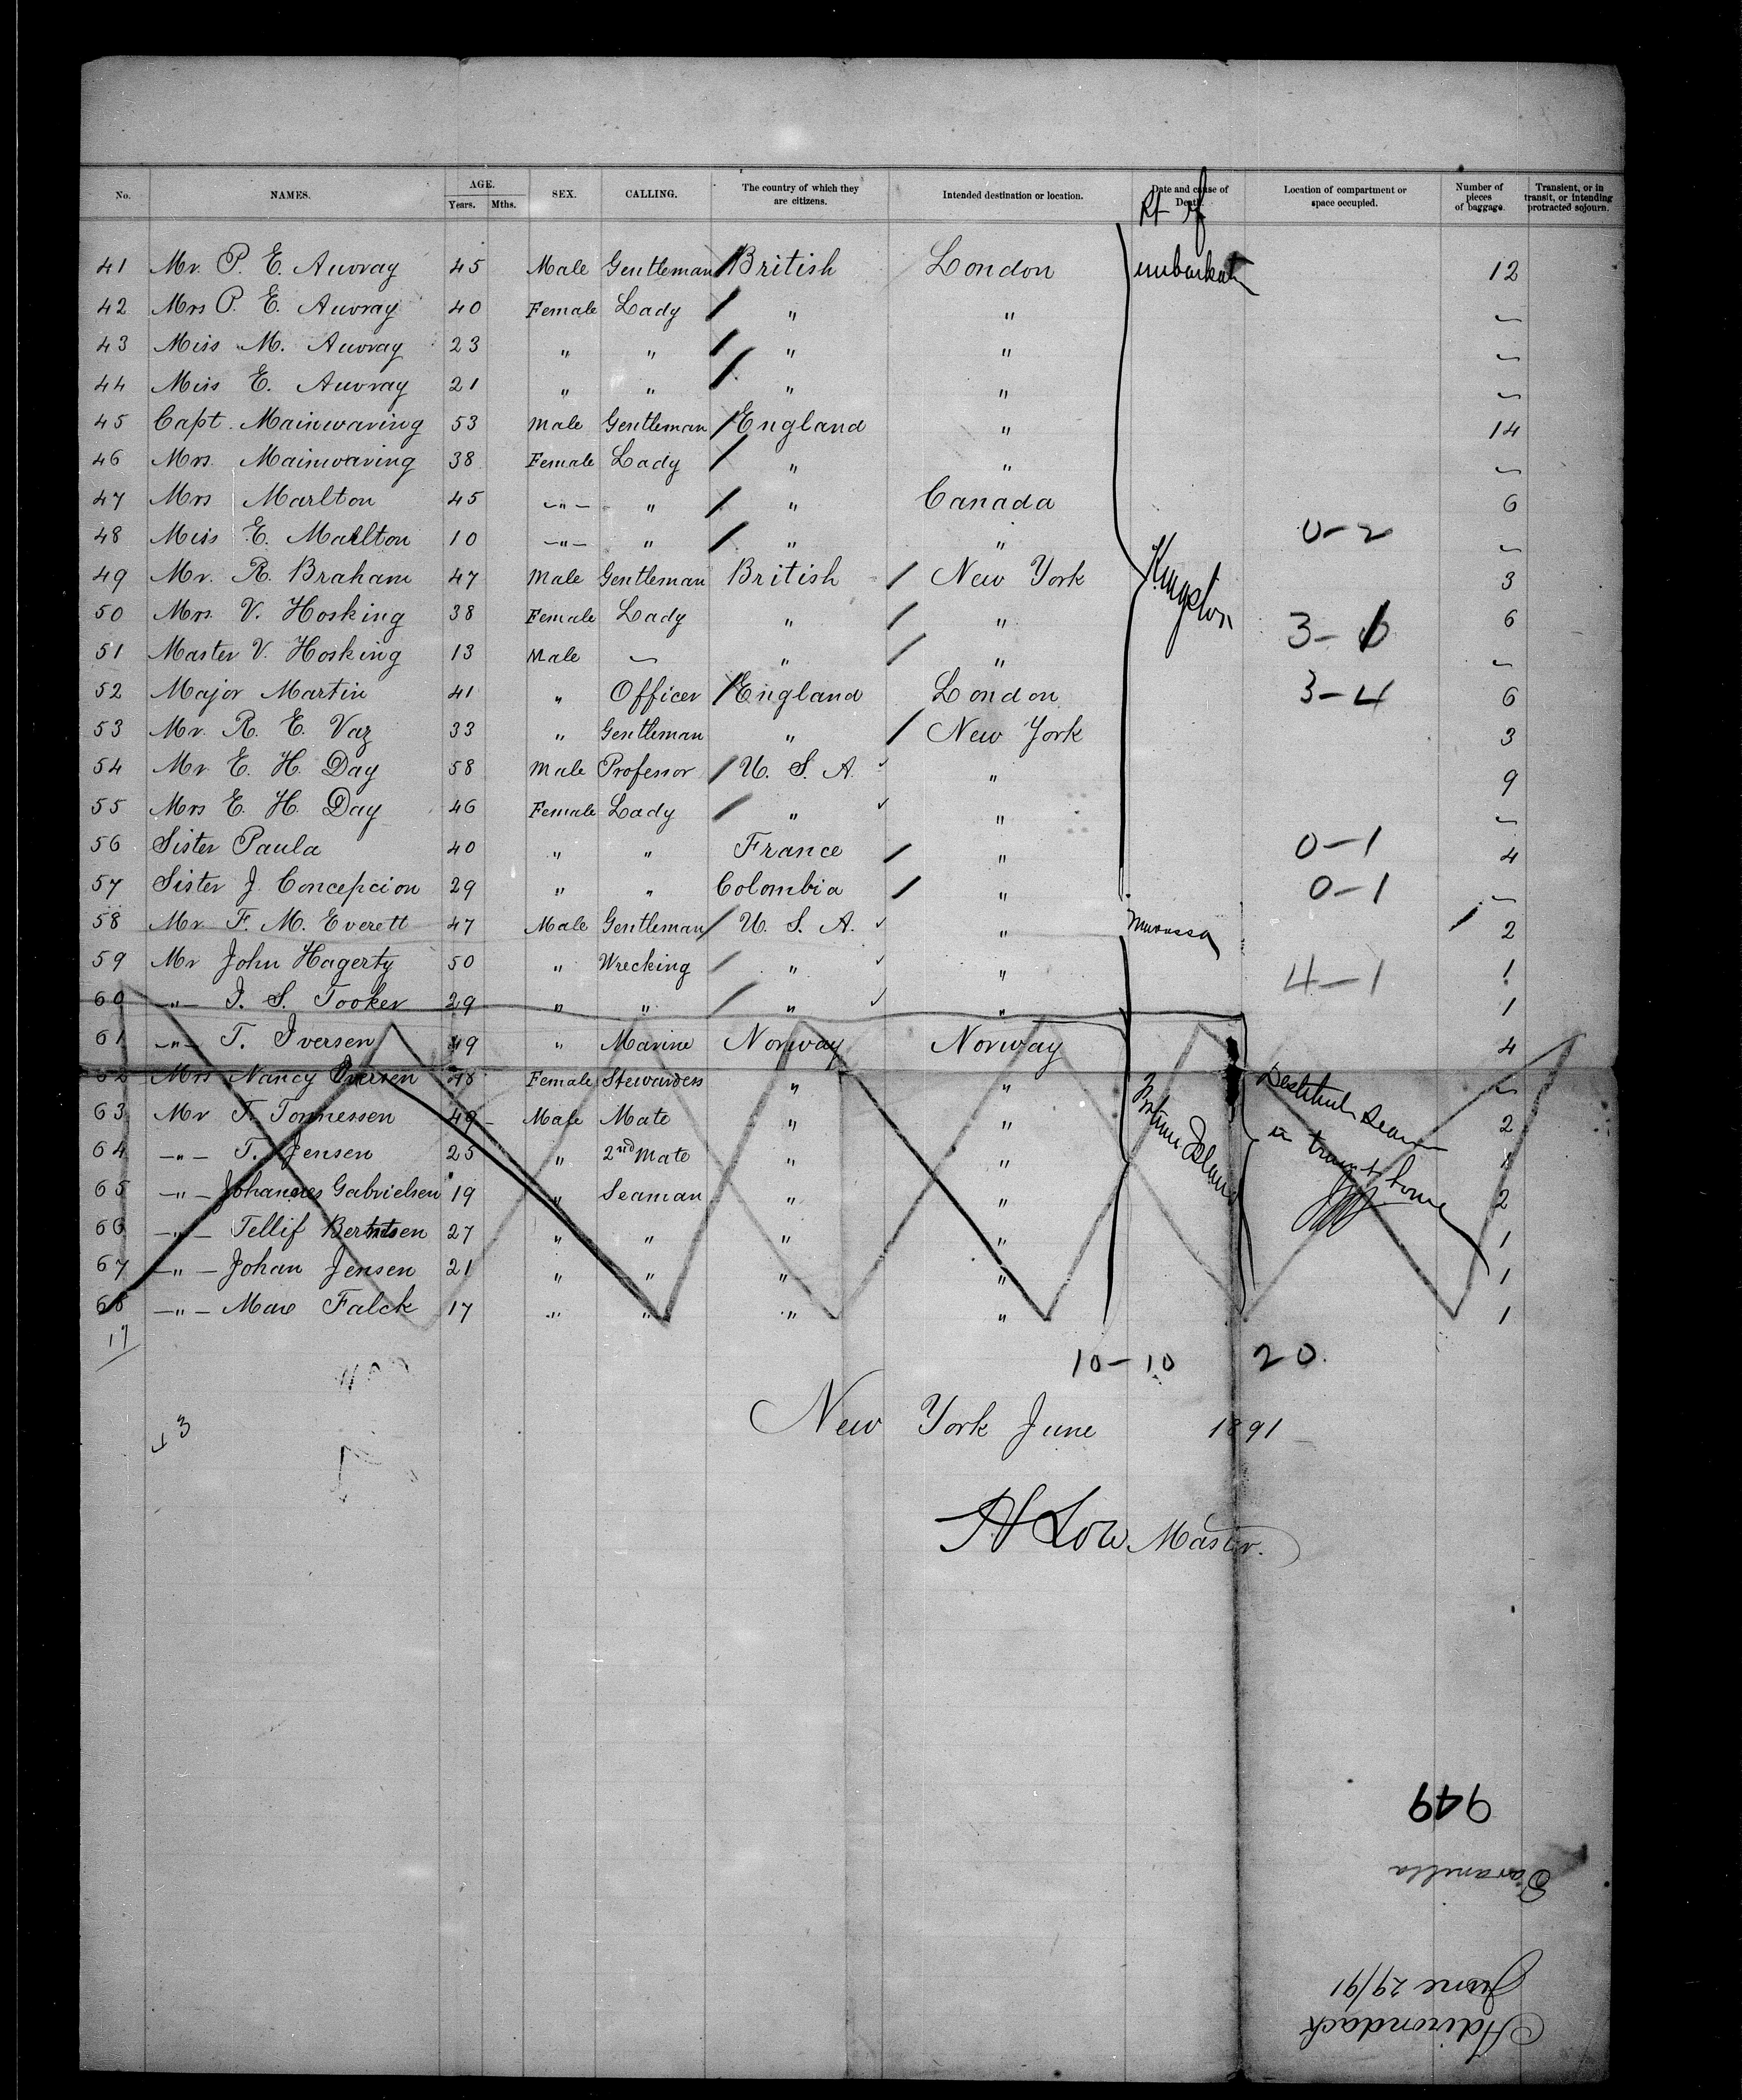 No. NAMES. AGE. Years. Mths. SEX. CALLING. The country of which they are citizens. Intended destination or location. Date and cause of Death. Location of compartment or space occupied. Number of pieces of baggage. Transient, or in transit, or intending protracted sojourn.
Pt of
41 Mr. P. E. Auvray 45 Male Gentleman British London embarkatn 12
42 Mrs P. E. Auvray 40 Female Lady " "
43 Miss M. Auvray 23 " " " "
44 Miss E. Auvray 21 " " " "
45 Capt. Mainwaring 53 Male Gentleman England " 14
46 Mrs. Mainwaring 38 Female Lady " "
47 Mrs Marlton 45 -"- " " Canada 6
48 Miss E. Marlton 10 -"- " " " 0-2
49 Mr. R. Braham 47 Male Gentleman British New York Kingston 3
50 Mrs. V. Hosking 38 Female Lady " " 3- 6
51 Master V. Hosking 13 Male " "
52 Major Martin 41 " Officer England London 3-4 6
53 Mr. R. E. Vaz 33 " Gentleman " New York 3
54 Mr E. H. Day 58 Male Professor U. S. A. " 9
55 Mrs E. H. Day 46 Female Lady " "
56 Sister Paula 40 " " France " 0-1 4
57 Sister J. Concepcion 29 " " Colombia " 0-1
58 Mr F. M. Everett 47 Male Gentleman U. S. A. " Navassa 2
59 Mr John Hagerty 50 " Wrecking " " 4-1 1
60 -"- I. S. Tooker 29 " " " " 1
61 -"- T. Iversen 49 " Marine Norway Norway 4
62 Mrs Nancy Iversen 48 Female Stewardess " "
63 Mr T. Tonnessen 49 Male Mate " " 2
64 -"- T. Jensen 25 " 2nd Mate " " 1
65 -"- Johannes Gabrielsen 19 " Seaman " " 2
66 -"- Tellif Berntsen 27 " " " " 1
67 -"- Johan Jensen 21 " " " " 1
68 -"- Max Falck 17 " " " " 1
Fortune Island
Destitute Seamen
in transit home
17
10-10 20.
New York June 1891
43
H Low Master.
949
Savanilla
June 29/91
Adirondack